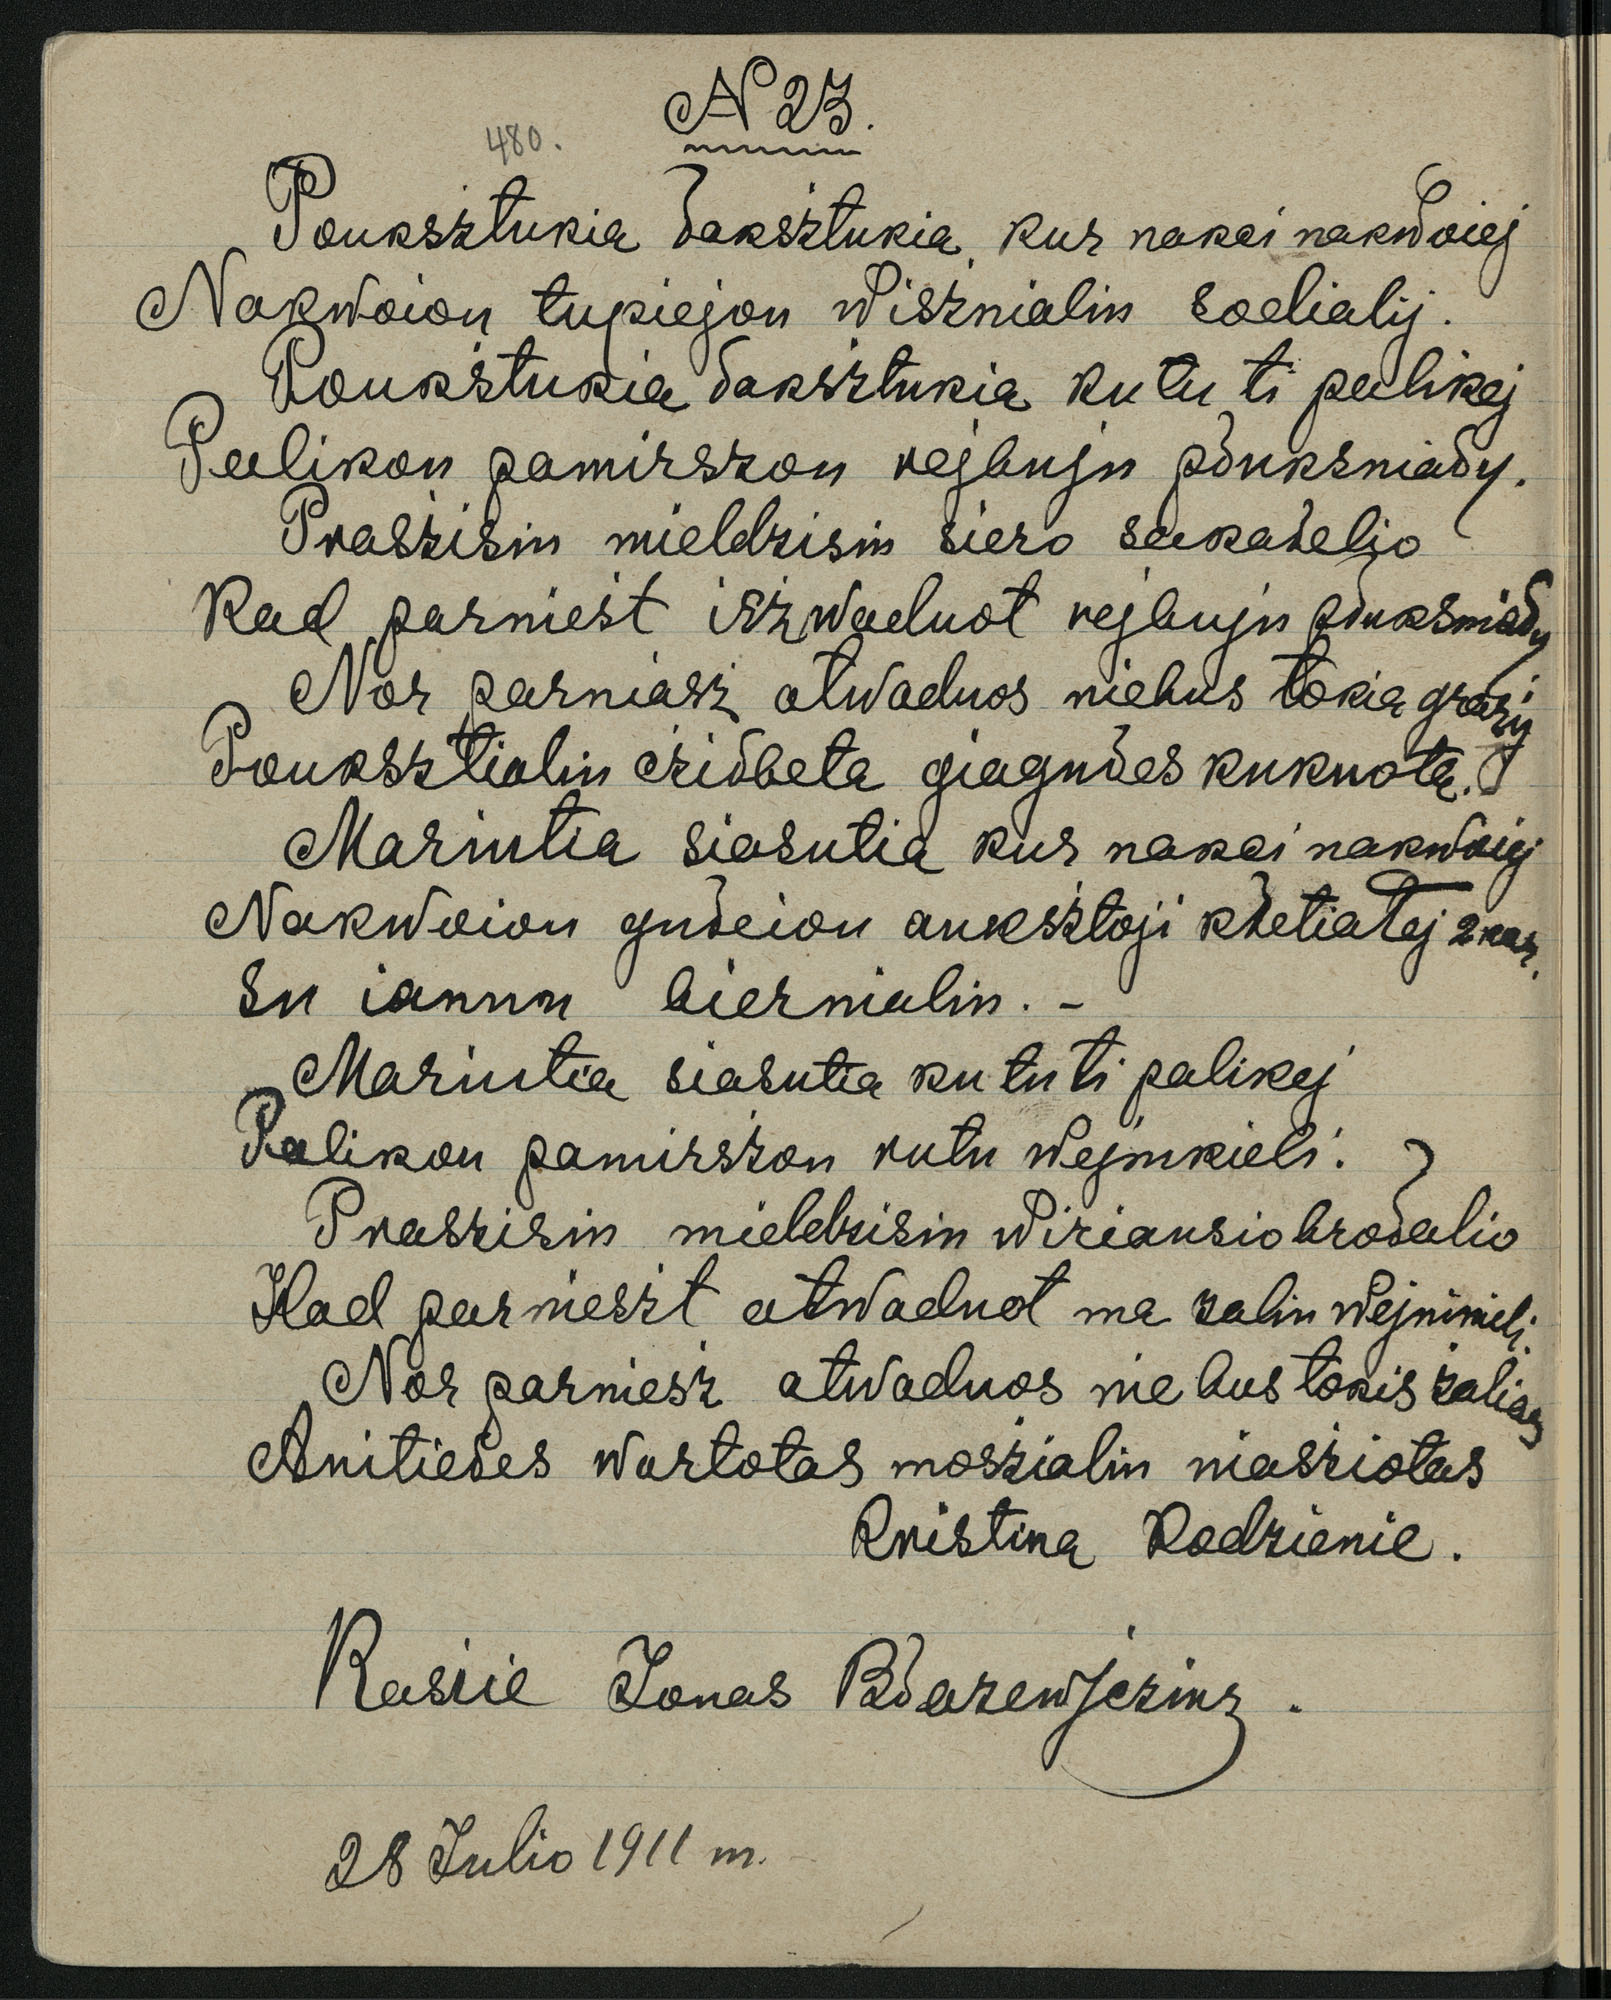 N 23.
480.
Pouksztukia łaksztukia, kur nakci nakwoiej
Nakwoion tupiejon wisznialin sodialij.
Poukstukia łaksztukia ku tu ti palikej
Palikon pamirszon rejbuju płuksniały.
Praszisin mieldzisin siero sakalelio
Kad parniest iszwaduot rejbuju płuksniały
Nor parniasz atwaduos niebus tokia grazij
Pouksztialin cziłbeta giagułes kukuota.
Mariutia siasutia kur nakci nakwoiej
Nakwoion gułeion auksztoji kłetiałej 2 kar.
Su iaunu biernialin. -
Mariutia siasutia ku tu ti palikej
Palikon pamirszon rutu wejnikieli.
Praszisin mieldzisin wiriausio brołalio
Kad parnieszt atwaduot ma zalin wejnikieli.
Nor parniesz atwaduos nie bus tokis zalias
Anitieles wartotas moszialin niasziotas
Kristina Kodzienie.
Raszie Jonas Błazewjczius.
28 Julio 1911 m.